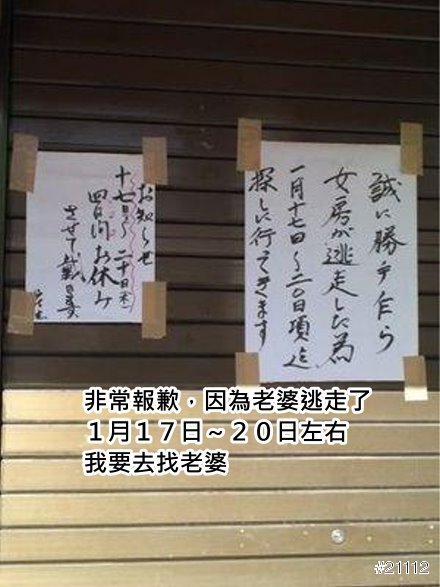 誠に勝手乍ら
女房が逃走した為
一月十七日~二〇日項迄
探しに行ってきます
お知らせ
十七日~二十日(木)
四日間お休み
させて戴きます
店主
非常報歉,因為老婆逃走了
1月17日~20日左右
我要去找老婆
#21112